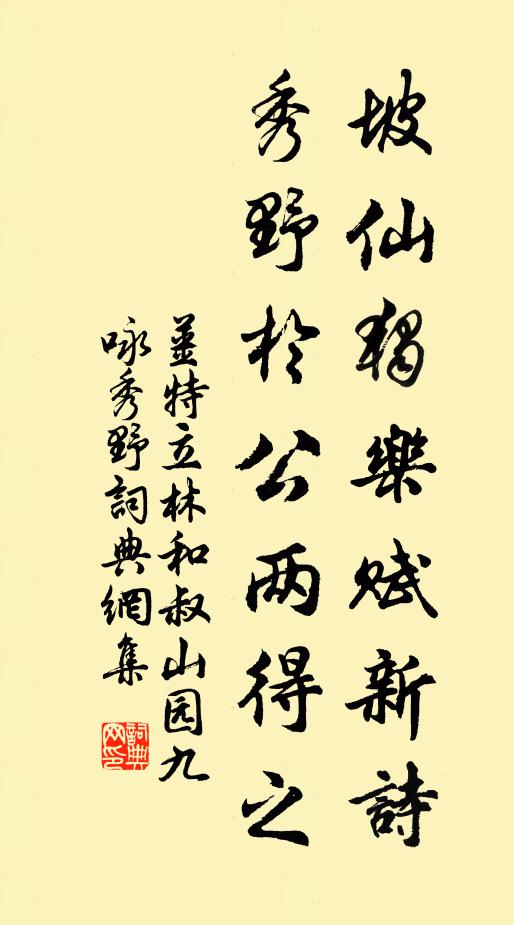 坡仙獨樂賦新詩
秀野於公两得之
姜特立林和叔山园九
咏秀野詞典網集
詞典网印